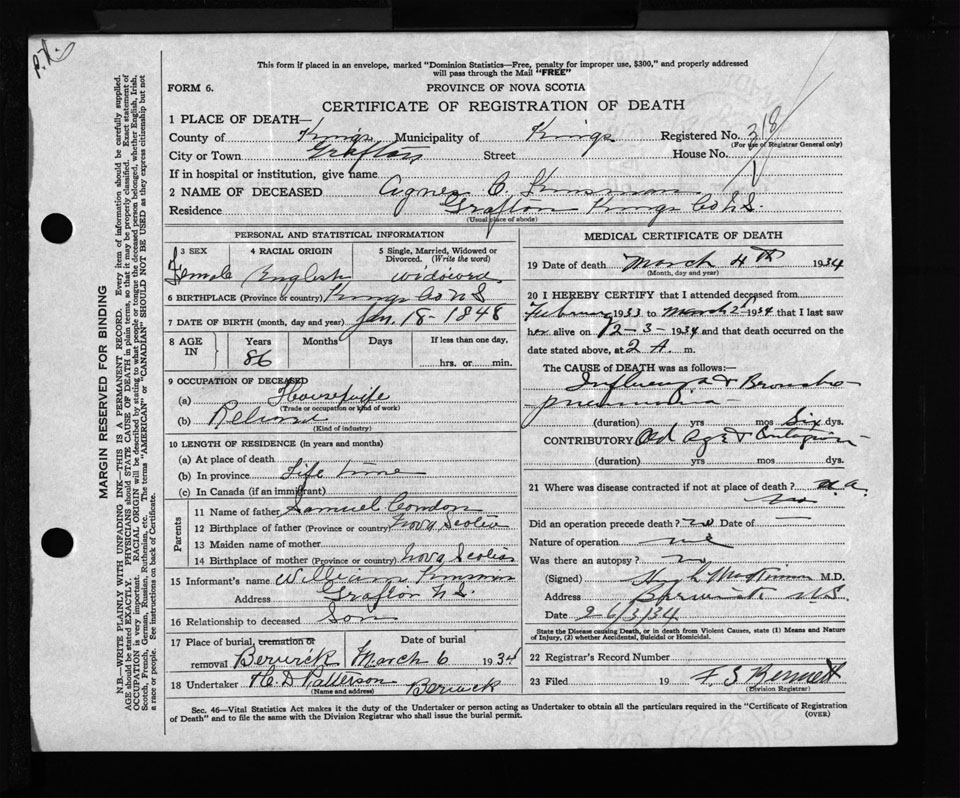 P.K.
This form if placed in an envelope, marked "Dominion Statistics—Free, penalty for improper use, $300," and properly addressed
will pass through the Mail "FREE"
FORM 6.
PROVINCE OF NOVA SCOTIA
CERTIFICATE OF REGISTRATION OF DEATH
1 PLACE OF DEATH—
County of Kings Municipality of Kings Registered No. 318
(For use of Registrar General only)
City or Town Grafton Street House No.
If in hospital or institution, give name
2 NAME OF DECEASED Agnes C. Kinsman
Residence Grafton Kings Co N.S.
(Usual place of abode)
PERSONAL AND STATISTICAL INFORMATION
3 SEX 4 RACIAL ORIGIN 5 Single, Married, Widowed or Divorced. (Write the word)
Female English widowed
6 BIRTHPLACE (Province or country) Kings Co N S
7 DATE OF BIRTH (month, day and year) Jan. 18 - 1848
8 AGE IN Years Months Days If less than one day,
86 hrs. or min.
9 OCCUPATION OF DECEASED
(a) Housewife
(Trade or occupation or kind of work)
(b) Retired
(Kind of industry)
10 LENGTH OF RESIDENCE (in years and months)
(a) At place of death
(b) In province Life time
(c) In Canada (if an immigrant)
Parents
11 Name of father Samuel Condon
12 Birthplace of father (Province or country) Nova Scotia
13 Maiden name of mother
14 Birthplace of mother (Province or country) Nova Scotia
15 Informant's name William Kinsman
Address Grafton N.S.
16 Relationship to deceased Son
17 Place of burial, cremation or removal Berwick Date of burial March 6 1934
18 Undertaker H. D Patterson Berwick
(Name and address)
MEDICAL CERTIFICATE OF DEATH
19 Date of death March 4th 1934
(Month, day and year)
20 I HEREBY CERTIFY that I attended deceased from
February 1933 to March 2 1934 that I last saw
her alive on 2-3-1934 and that death occurred on the
date stated above, at 2 A. m.
The CAUSE OF DEATH was as follows:—
Influenza & Broncho-
pneumonia —
(duration) yrs mos Six dys.
CONTRIBUTORY Old Age &
(duration) yrs mos dys.
21 Where was disease contracted if not at place of death?
Did an operation precede death? no Date of —
Nature of operation
Was there an autopsy?
(Signed) M.D.
Address Berwick N.S.
Date 26/3/34
State the Disease causing Death, or in death from Violent Causes, state (1) Means and Nature
of Injury, (2) whether Accidental, Suicidal or Homicidal.
22 Registrar's Record Number
23 Filed 19 F S Bennett
(Division Registrar)
Sec. 46—Vital Statistics Act makes it the duty of the Undertaker or person acting as Undertaker to obtain all the particulars required in the "Certificate of Registration
of Death" and to file the same with the Division Registrar who shall issue the burial permit.
(OVER)
MARGIN RESERVED FOR BINDING
N.B.—WRITE PLAINLY WITH UNFADING INK—THIS IS A PERMANENT RECORD. Every item of information should be carefully supplied.
AGE should be stated EXACTLY. PHYSICIANS should STATE CAUSE OF DEATH in plain terms, so that it may be properly classified. Exact statement of
OCCUPATION is very important. RACIAL ORIGIN will be described by stating to what people or tongue the deceased person belonged, whether English, Irish,
Scotch, French, German, Russian, Ruthenian, etc. The terms "AMERICAN" or "CANADIAN" SHOULD NOT BE USED as they express citizenship but not
a race or people. See instructions on back of Certificate.